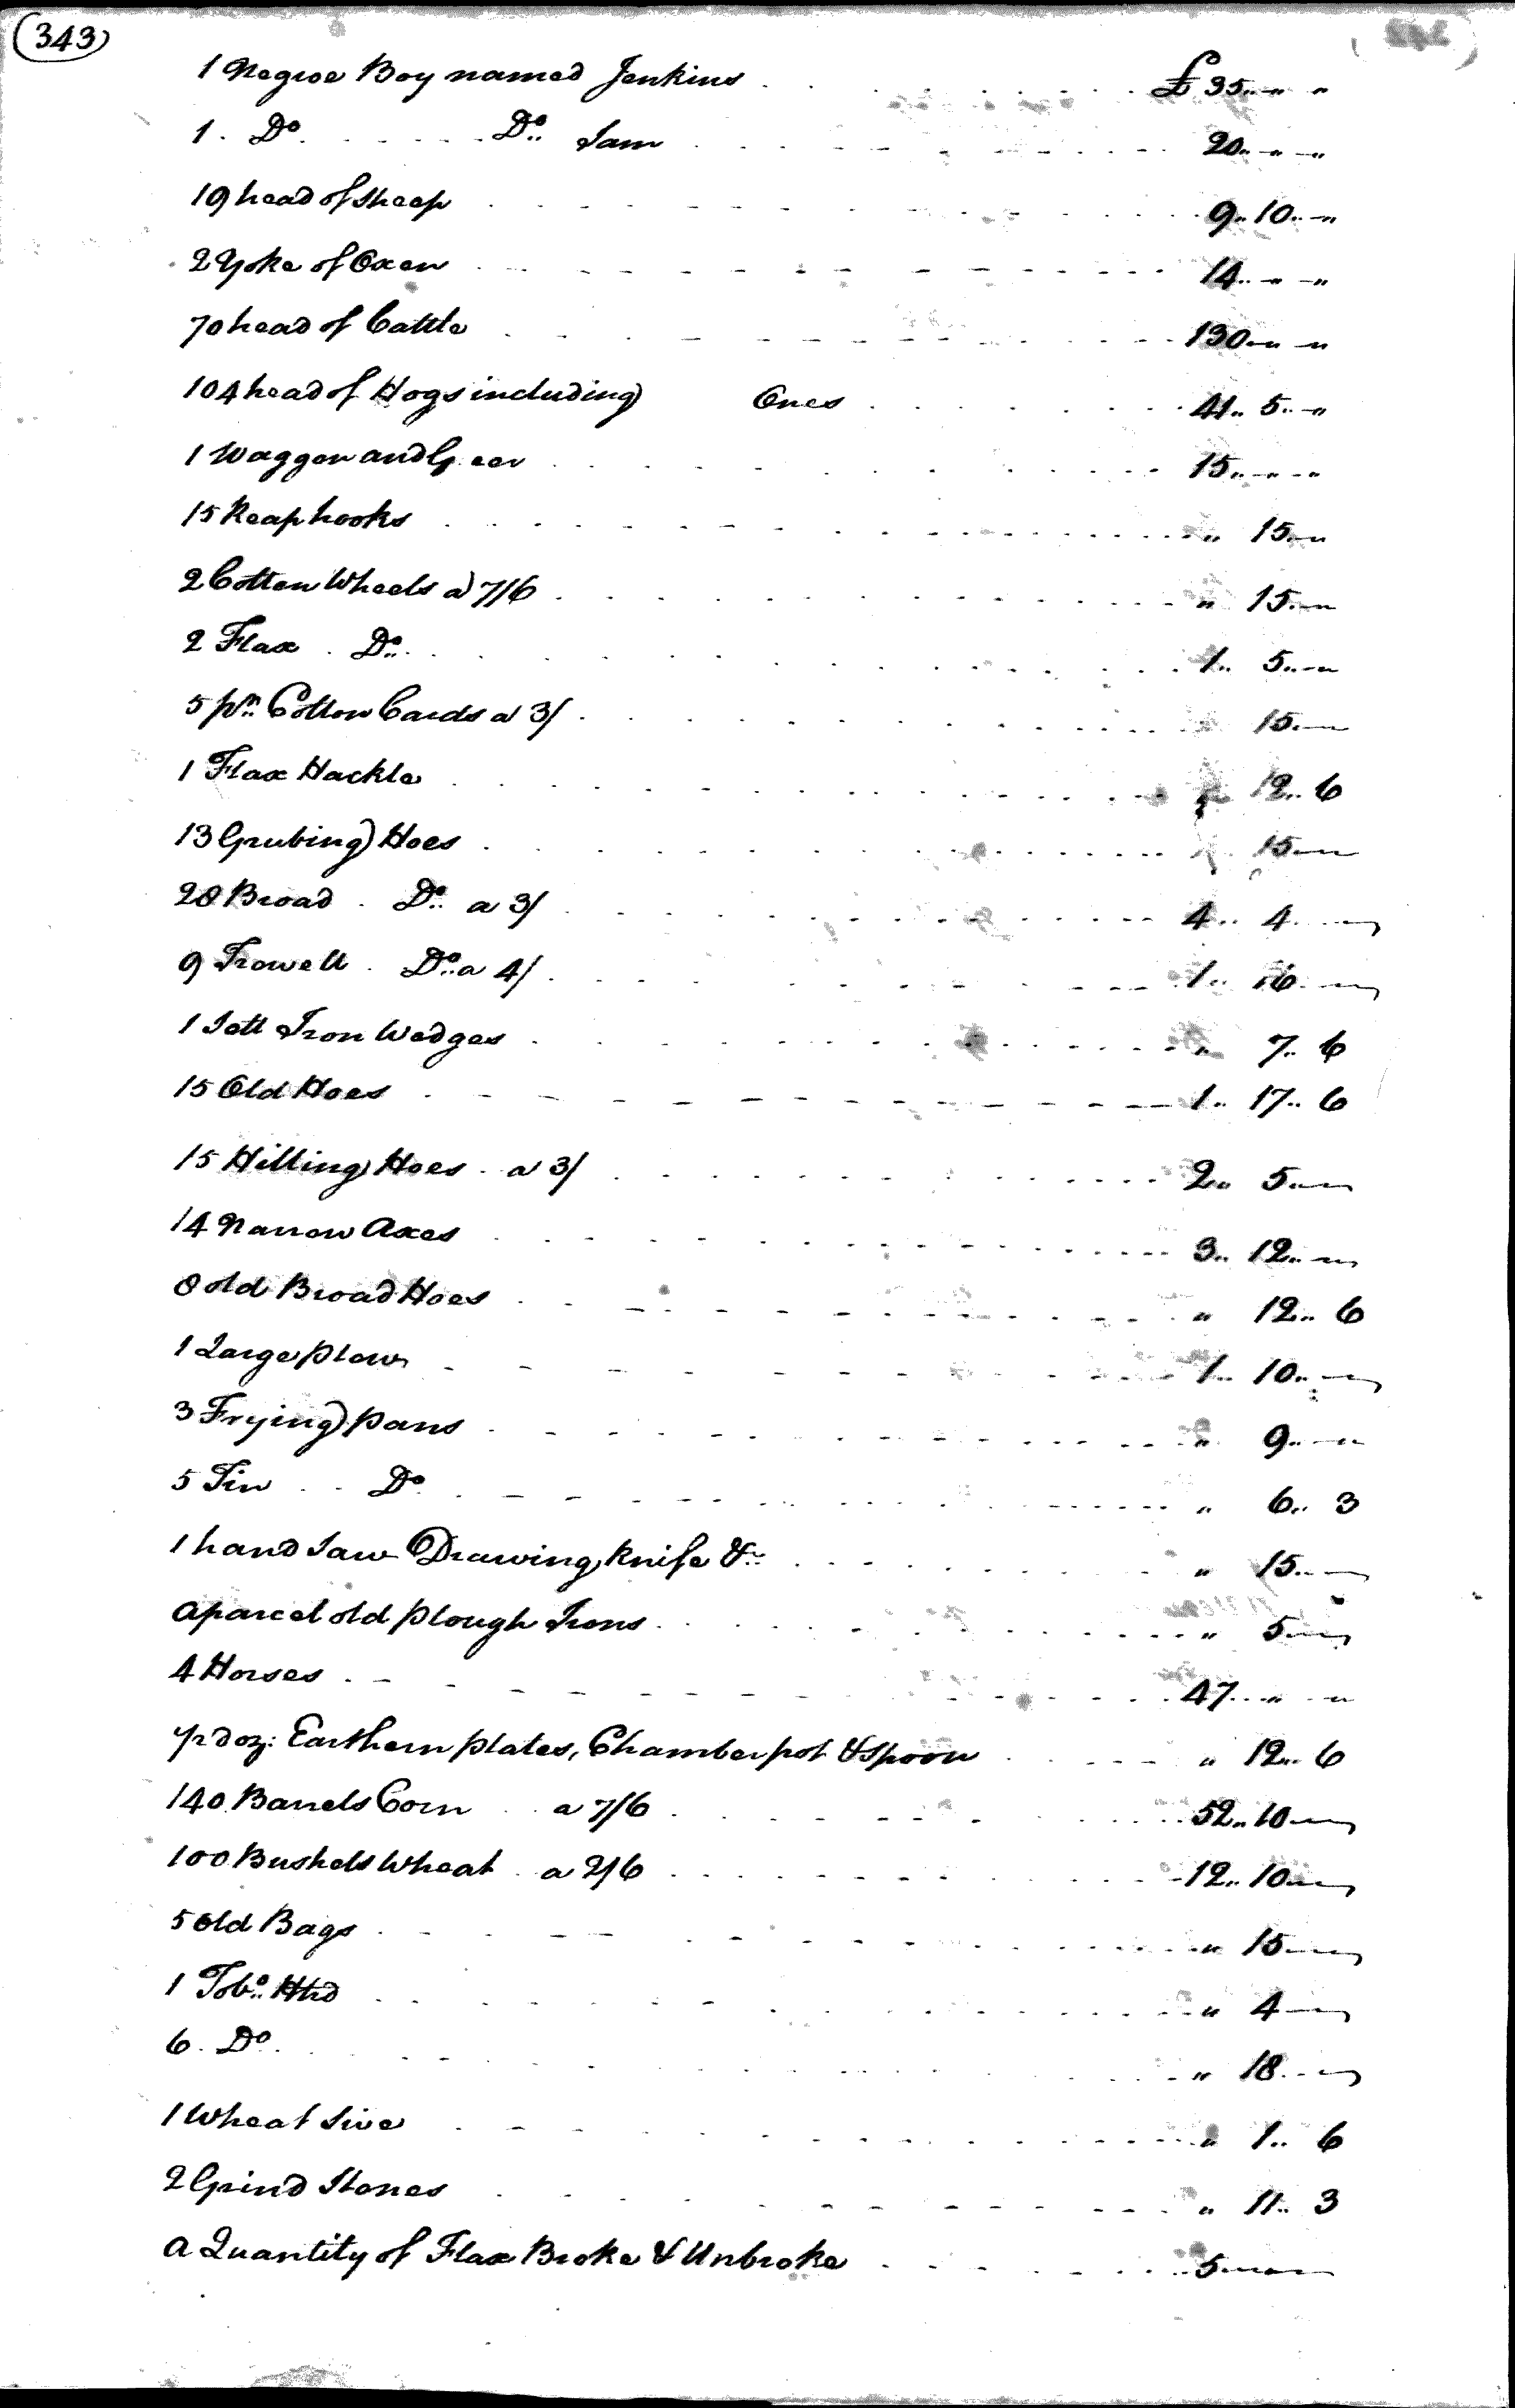 (343)
1 Negroe Boy named Jenkins . . . £ 35..„ „
1. Do. . . . Do.. Sam . . . 20..„ „
19 head of Sheep . . . 9..10..„
2 Yoke of Oxen . . . 14..„ „
70 head of Cattle . . . 130..„ „
104 head of Hogs including Ones . . . 41..5..„
1 Waggon and Geer . . . 15..„ „
15 Reap hooks . . . „ 15..„
2 Cotten Wheels a 7/6 . . . „ 15..„
2 Flax . Do.. . . . 1..5..„
5 pr.. Cotton Cards a 3/ . . . 15..„
1 Flax Hackle . . . „ 12..6
13 Grubing Hoes . . . 15..„
28 Broad . Do.. a 3/ . . . 4..4..„
9 Trowell . Do.. a 4/ . . . 1..16..„
1 Sett Iron Wedges . . . „ 7..6
15 Old Hoes . . . 1..17..6
15 Hilling Hoes . a 3/ . . . 2..5..„
14 Narrow Axes . . . 3..12..„
8 old Broad Hoes . . . „ 12..6
1 Large plow . . . 1..10..„
3 Frying pans . . . „ 9..„
5 Tin . . Do . . . „ 6..3
1 hand Saw Drawing knife &c.. . . . „ 15..„
A parcel old plough Irons . . . „ 5..„
4 Horses . . . 47..„ „
1/2 doz: Earthern plates, Chamber pot & Spoon . . . „ 12..6
140 Barrels Corn . . a 7/6 . . . 52..10..„
100 Bushels Wheat . a 2/6 . . . 12..10..„
5 old Bags . . . „ 15..„
1 Tobo.. Hhd . . . „ 4..„
6. Do. . . . „ 18..„
1 Wheat Sive . . . „ 1..6
2 Grind Stones . . . „ 11..3
A Quantity of Flax Broke & Unbroke . . . 5..„ „